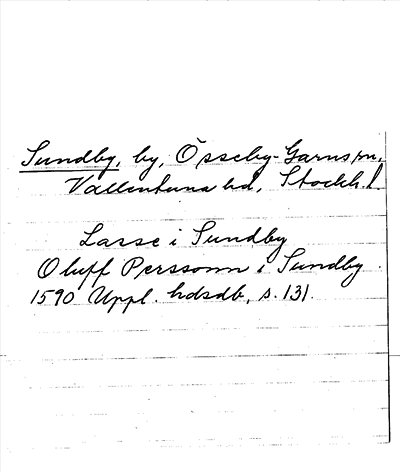 Sundby, by, Össeby-Garns sn,
Vallentuna hd, Stockh. l.
Lasse i Sundby
Oluff Perssonn i Sundby.
1590 Uppl. hdsdb, s. 131.